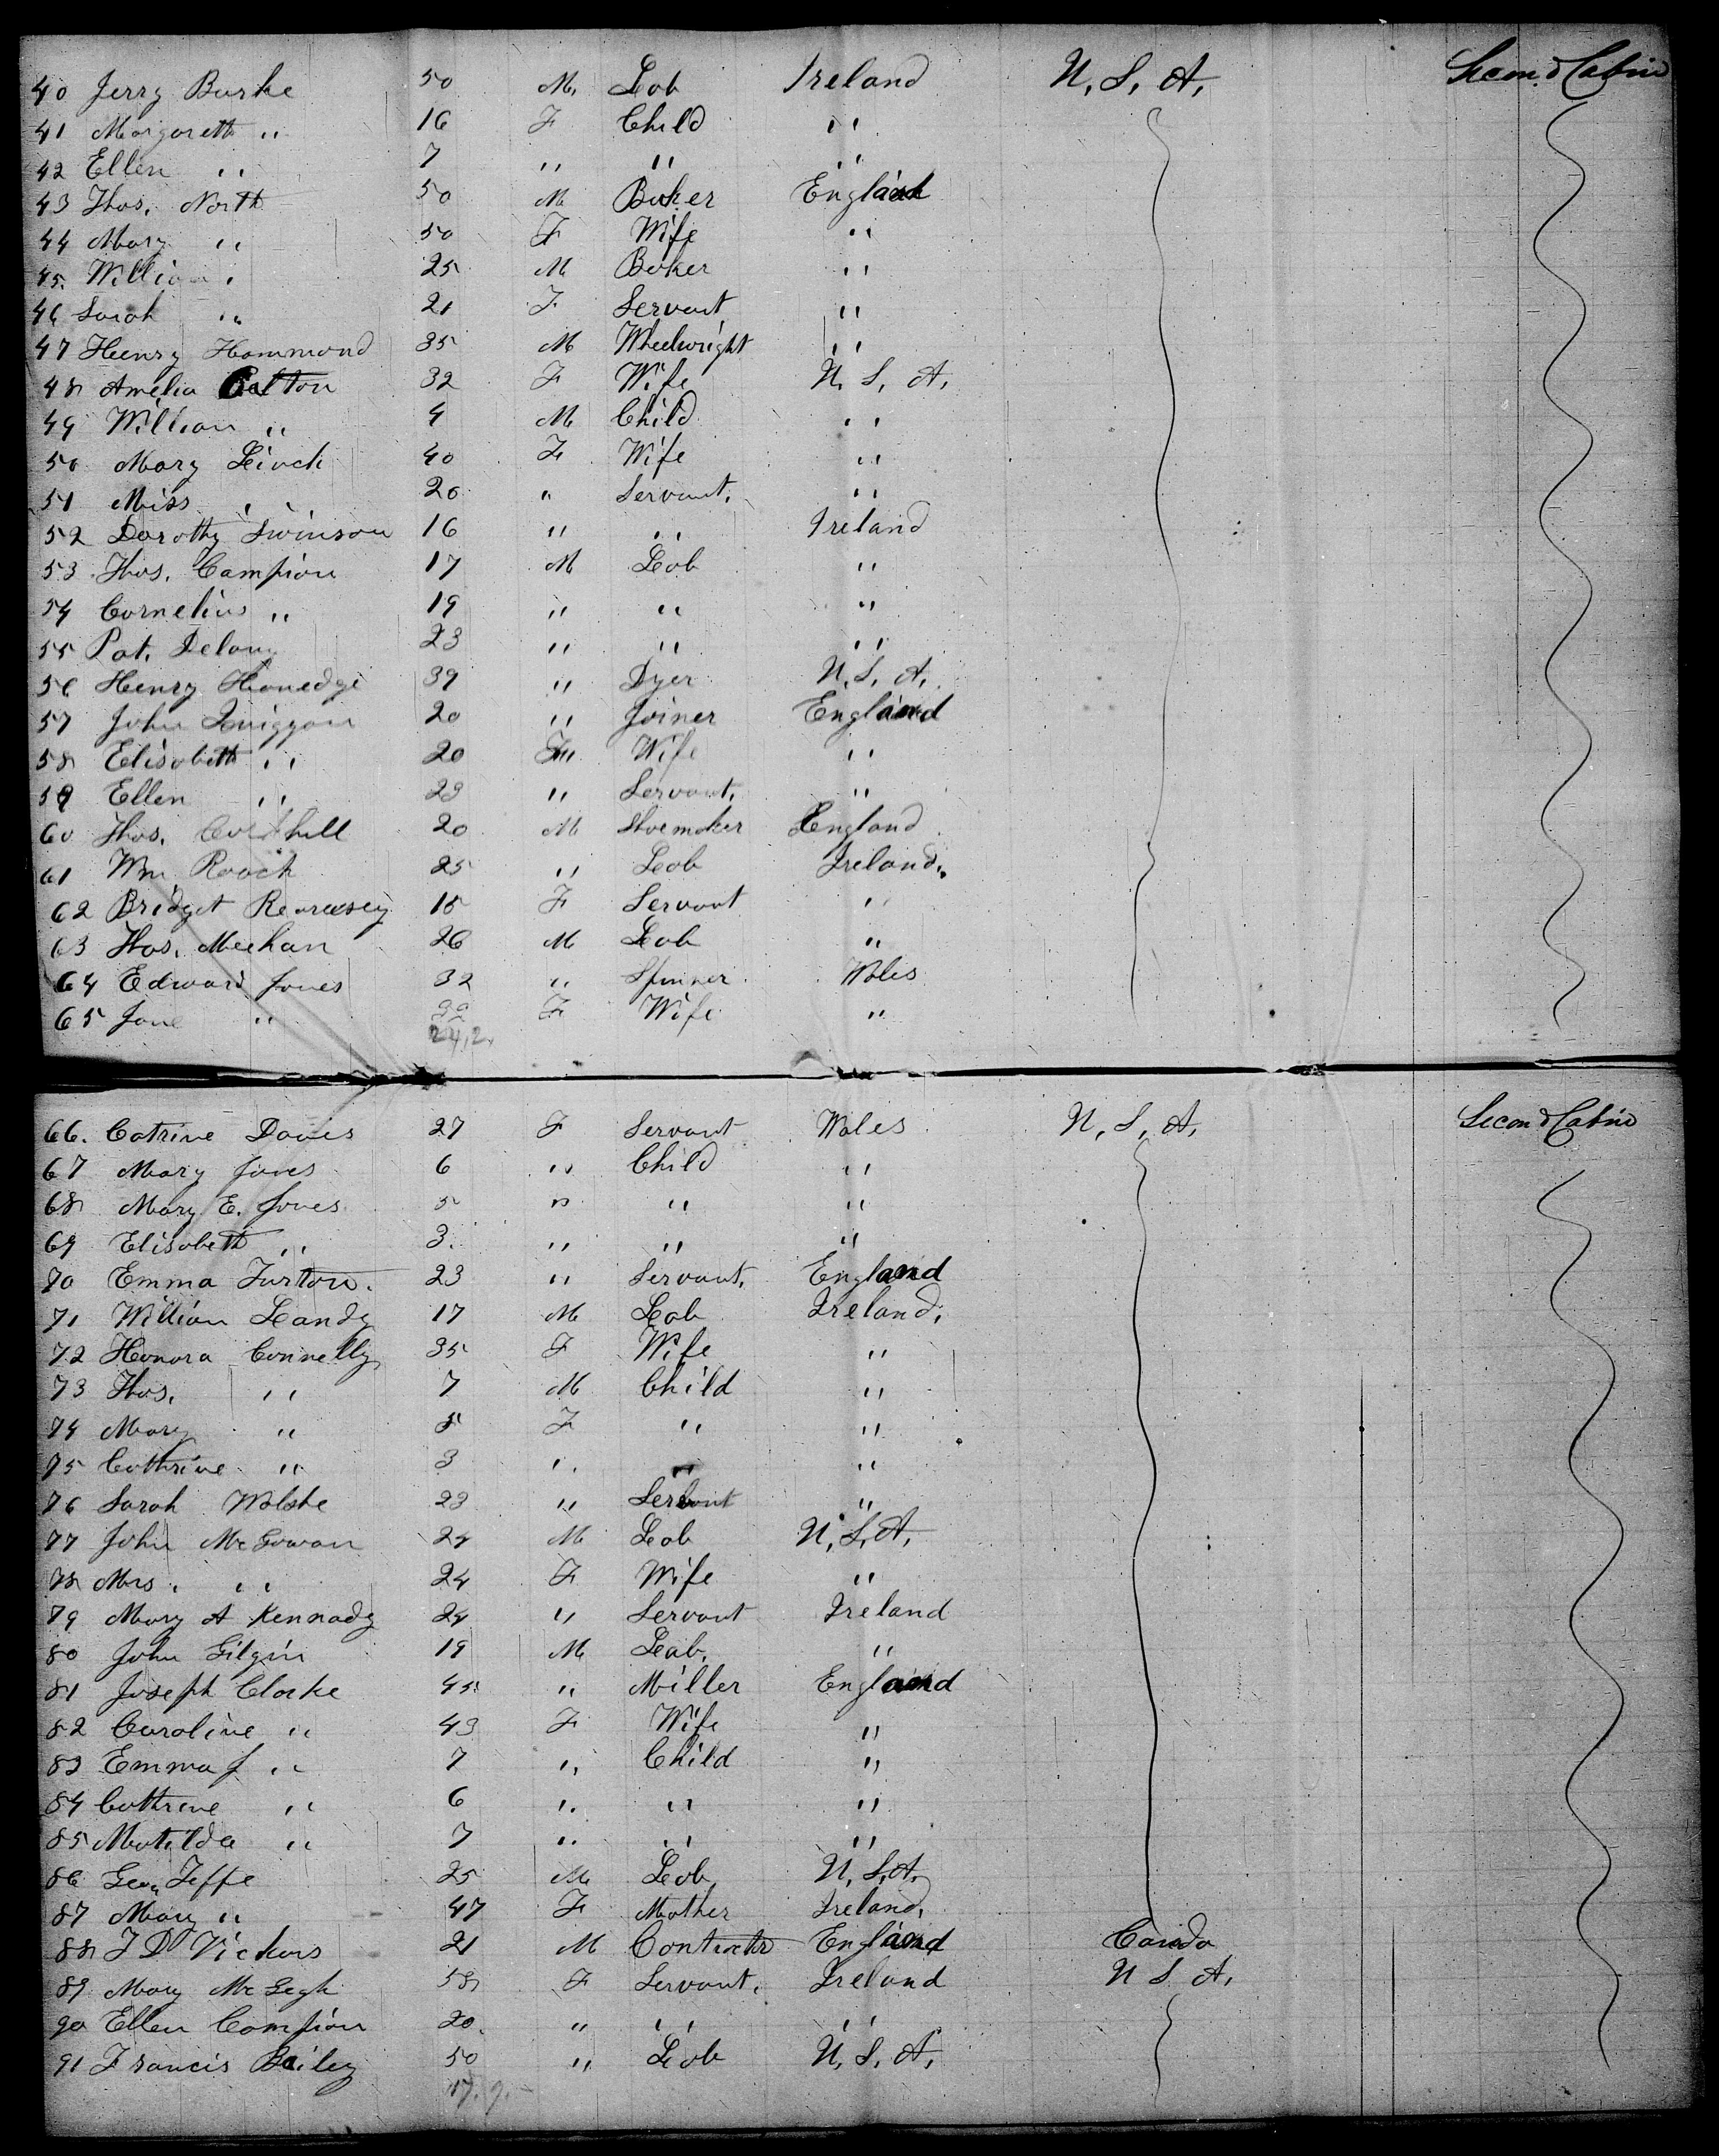 40 Jerry Burke 50 M. Lab Ireland U. S. A. Second Cabin
41 Margareth " 16 F Child "
42 Ellen " 7 " " "
43 Thos. North 50 M Baker England
44 Mary " 50 F Wife "
45. William " 25 M Baker "
46 Sarah " 21 F Servant "
47 Henry Hammond 35 M Wheelwright "
48 Amelia 32 F Wife U. S. A.
49 William " 4 M Child "
50 Mary Leioch 40 F Wife "
51 Miss " 20 " Servant. "
52 Dorothy Swinson 16 " " Ireland
53 Thos. Campion 17 M Lab "
54 Cornelius " 19 " " "
55 Pat. Delany 23 " " "
56 Henry 39 " Dyer U. S. A.
57 John Quiggan 20 " Joiner England
58 Elisabeth " 20 F Wife "
59 Ellen " 23 " Servant. "
60 Thos. 20 M Shoemaker England
61 Wm Roach 25 " Lab Ireland
62 Bridget F Servant "
63 Thos. Meehan 26 M Lab "
64 Edward Jones 32 " Spinner Wales
65 Jane " F Wife "
66. Catrine Davis 27 F Servant Wales U. S. A. Second Cabin
67 Mary Jones 6 " Child "
68 Mary E. Jones 5 " " "
69 Elisabeth " 3. " " "
70 Emma Turton. 23 " Servant. England
71 William Landy 17 M Lab Ireland.
72 Honora Connelly 35 F Wife "
73 Thos. " 7 M Child "
74 Mary " 5 F " "
75 Cathrine " 3 " " "
76 Sarah Walshe 23 " Servant "
77 John McGowan 24 M Lab U. S. A.
78 Mrs. " 24 F Wife "
79 Mary A Kennady 24 " Servant Ireland
80 John Gilgin 19 M Lab. "
81 Joseph Clarke 45 " Miller England
82 Caroline " 43 F Wife "
83 Emma J " 7 " Child "
84 Cathrine " 6 " " "
85 Matilda " 7 " " "
86 Geo. Teffe 25 M Lab U. S. A.
87 Mary " 47 F Mother Ireland.
88 J D Vickars 21 M Contractr England Canada
89 Mary 58 F Servant. Ireland U S A.
90 Ellen Campion 20. " " "
91 Francis Bailey 50 " Lab U. S. A.